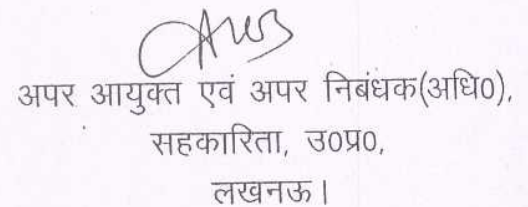 अपर आयुक्त एवं अपर निबंधक(अधि0),
सहकारिता, उ0प्र0,
लखनऊ।